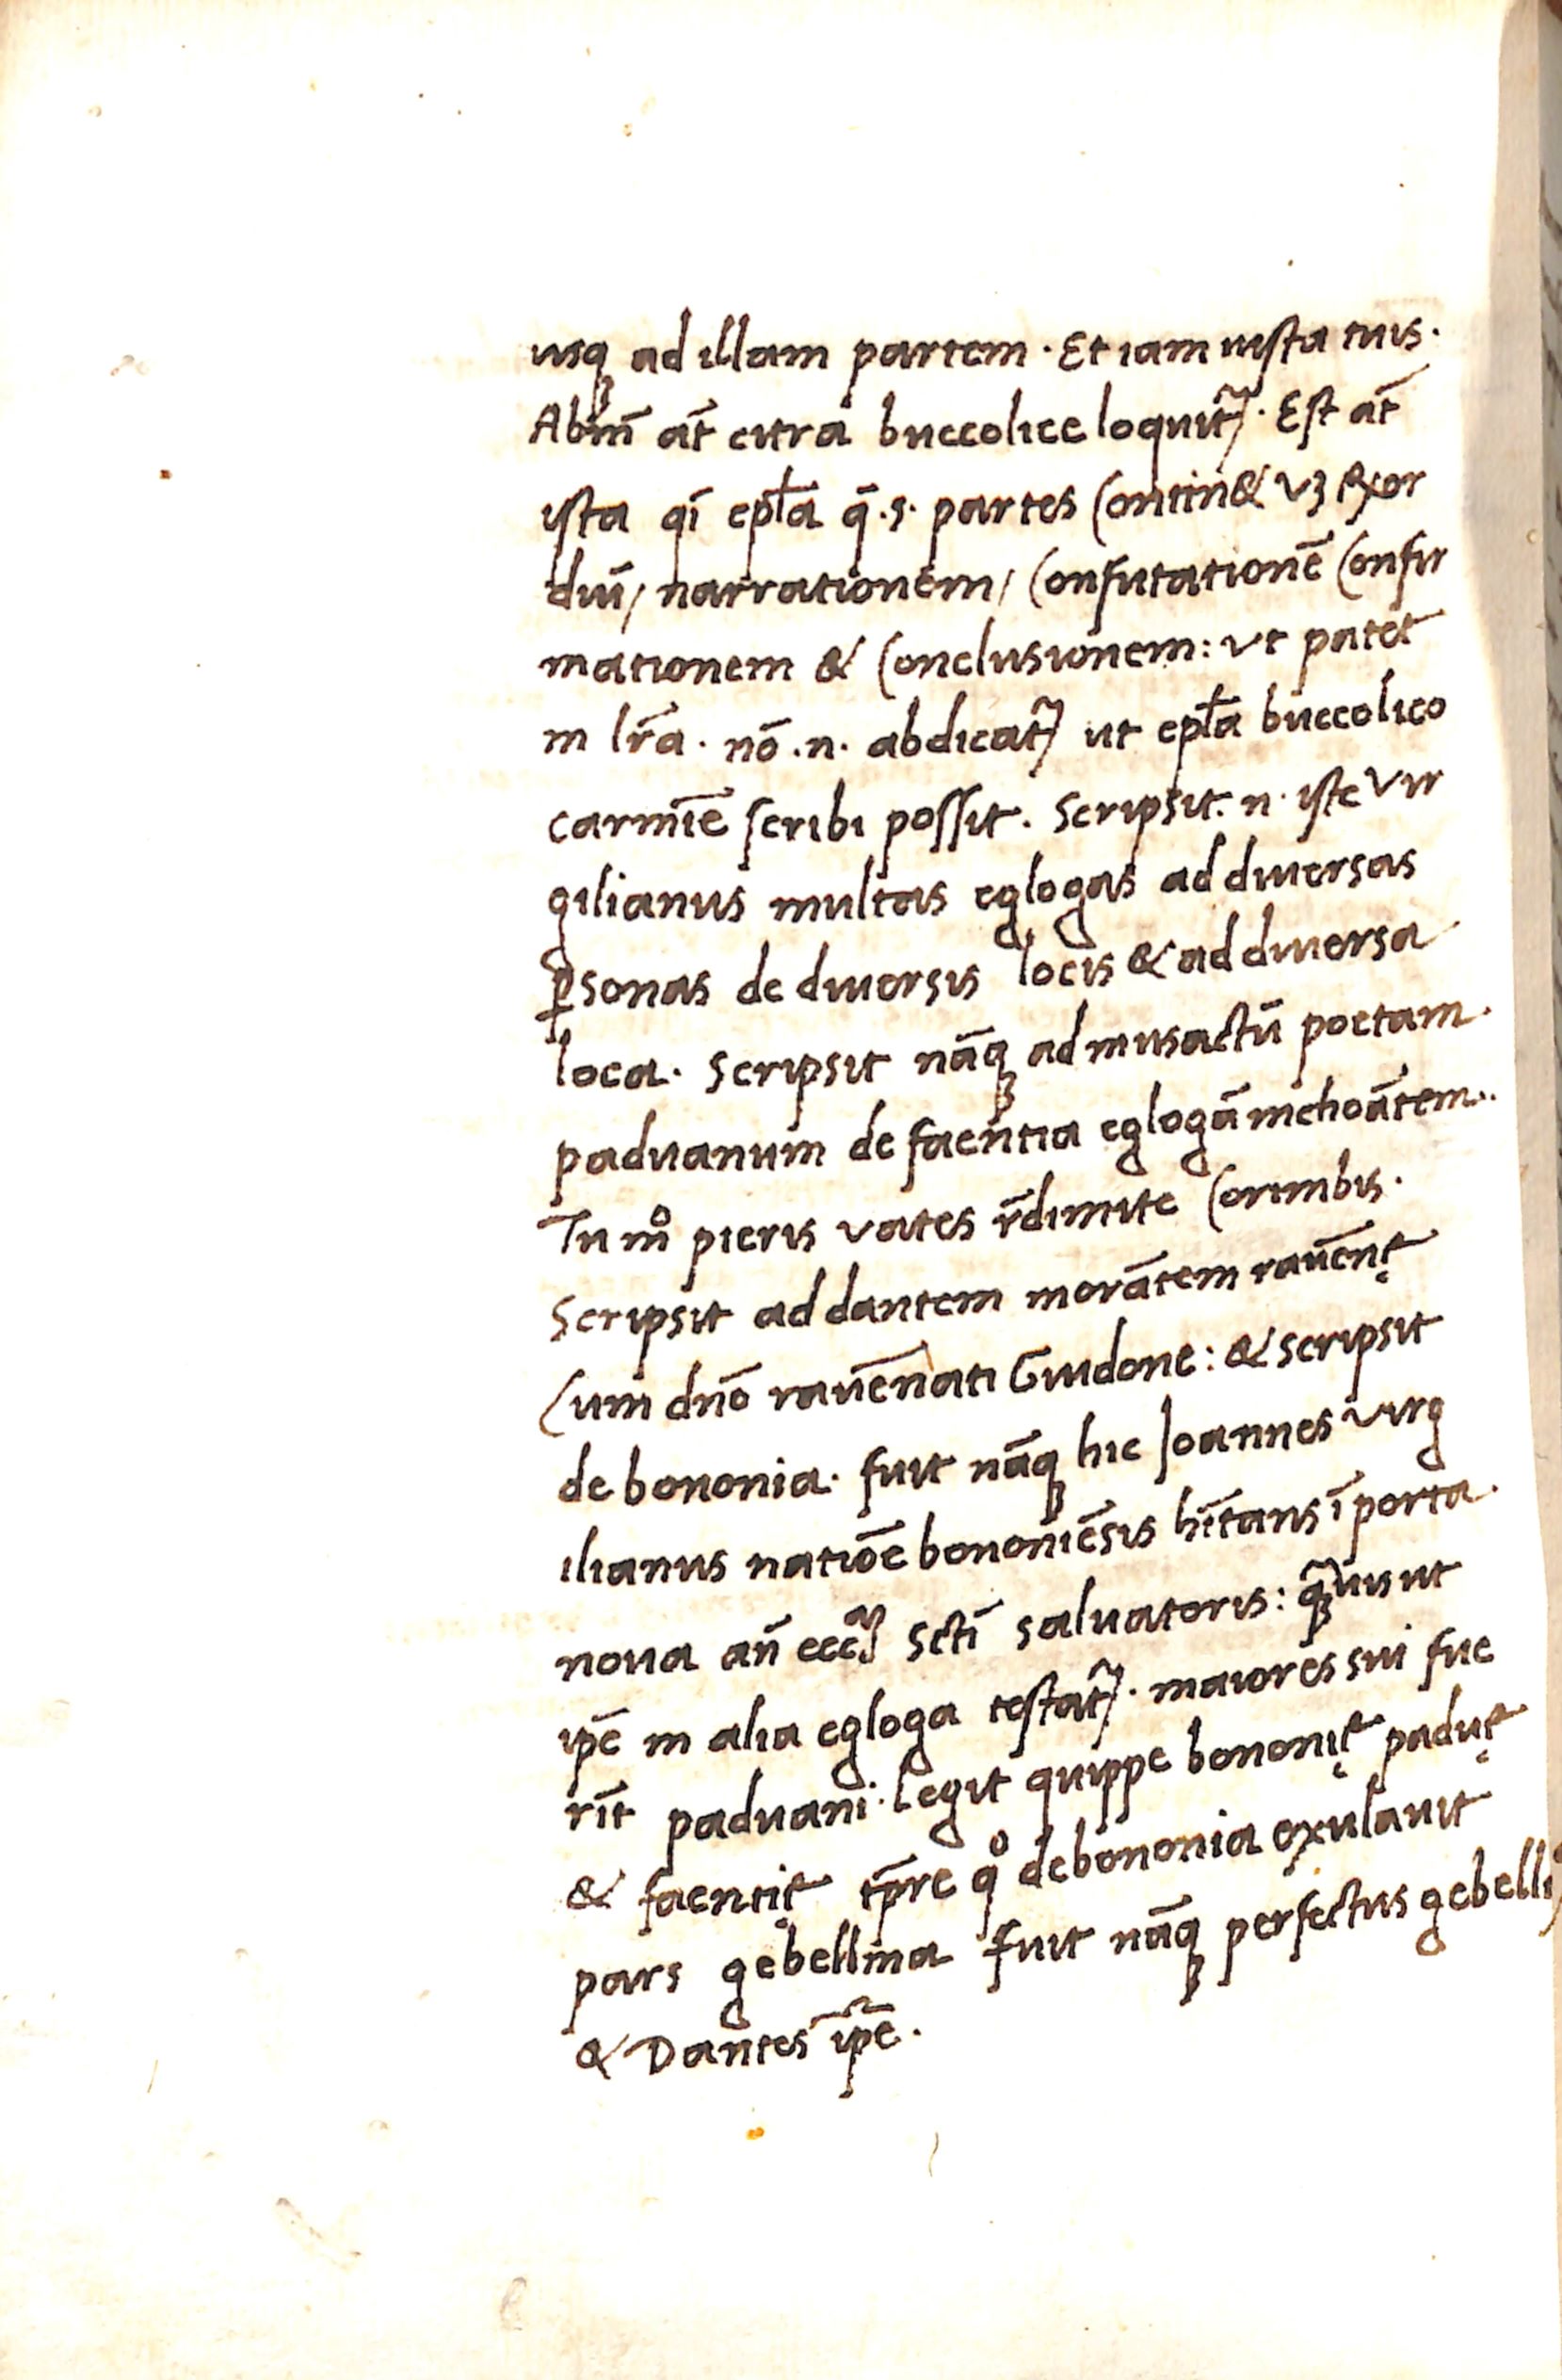 usqꝫ ad illam partem · Et iam iusta tuis ·
Abin̄ at̄ citra buccolice loquit᷑ · Est at̄
ista qi᷑ epl̄a q̄ ·5· partes Contin& vꝫ Exor
diū / narrationem / Confutationē Confir
mationem & Conclusionem : vt patet
in lr̄a · nō ·n· abdicat᷑ ut epl̄a buccolico
carmīe scribi possit · Scripsit ·n· iste Vir
gilianus multas eglogas ad diuersas
ꝑsonas de diuersis locis & ad diuersa
loca · Scripsit nāqꝫ ad musactū poetam ·
paduanum de faentia eglogā inchoātem ··
Tu mͦ pieris vates r̄dimite Corimbis ·
Scripsit ad dantem morātem rauēnę
Cum dn̄o rauēnati Guidone : & scripsit
de bononia · fuit nāqꝫ hic Joannes virg
ilianus natiōe bononiēsis hītans ī porta ·
noua an̄ ecc̄ꝫ Scti᷑ saluatoris : qꝫ̄uis ut
ip̄e in alia egloga testat᷑ · maiores sui fue
rīt paduani · Legit quippe bononię paduę
& faentię tp̄re qͦ de bononia exulauit
pars gebellina fuit nāqꝫ perfectus gebelli
& Dantes ip̄e ·